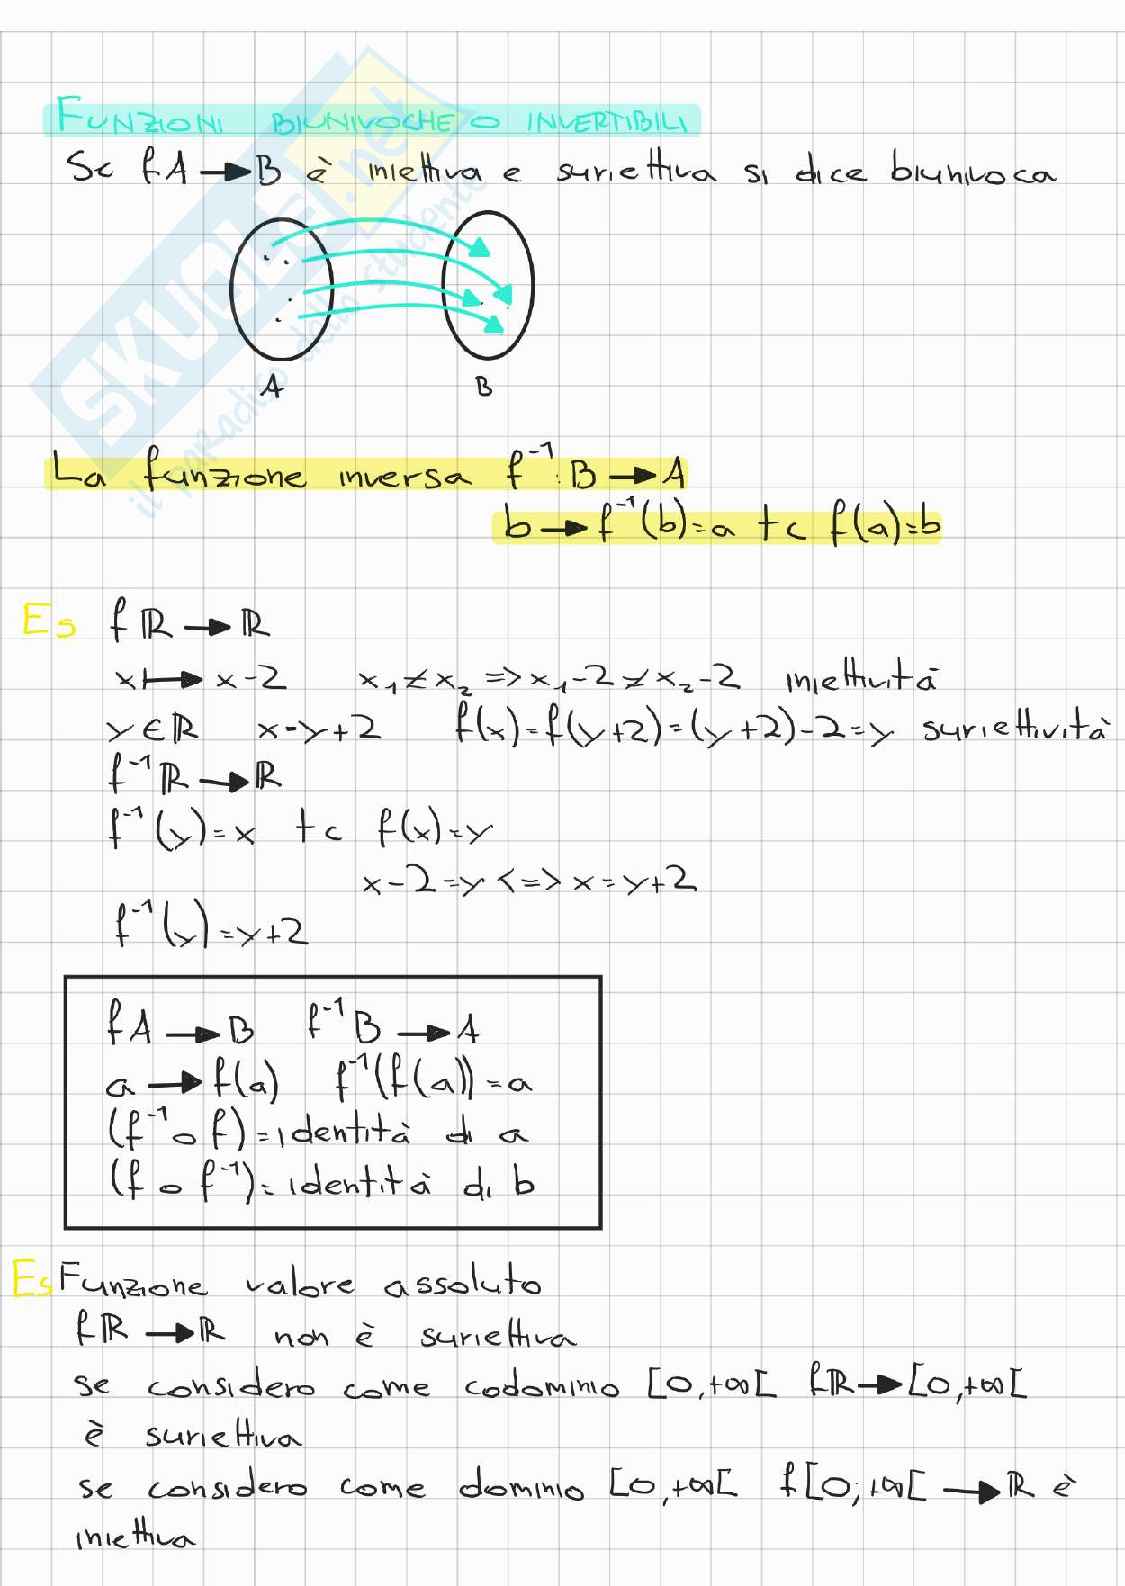 FUNZIONI BIUNIVOCHE O INVERTIBILI
Se f A → B è iniettiva e suriettiva si dice biunivoca
A B
La funzione inversa f⁻¹: B → A
b → f⁻¹(b) = a tc f(a) = b
Es f ℝ → ℝ
x ↦ x-2 x₁ ≠ x₂ => x₁-2 ≠ x₂-2 iniettività
y ∈ ℝ x-y+2 f(x) = f(y+2) = (y+2)-2 = y suriettività
f⁻¹ ℝ → ℝ
f⁻¹(y) = x tc f(x) = y
x-2 = y <=> x = y+2
f⁻¹(y) = y+2
f A → B f⁻¹ B → A
a → f(a) f⁻¹(f(a)) = a
(f⁻¹ o f) = identità di a
(f o f⁻¹) = identità di b
Es Funzione valore assoluto
f ℝ → ℝ non è suriettiva
se considero come codominio [0,+∞[ f ℝ → [0,+∞[
è suriettiva
se considero come dominio [0,+∞[ f [0;+∞[ → ℝ è
iniettiva
SKUOLA.net
il paradiso dello studente